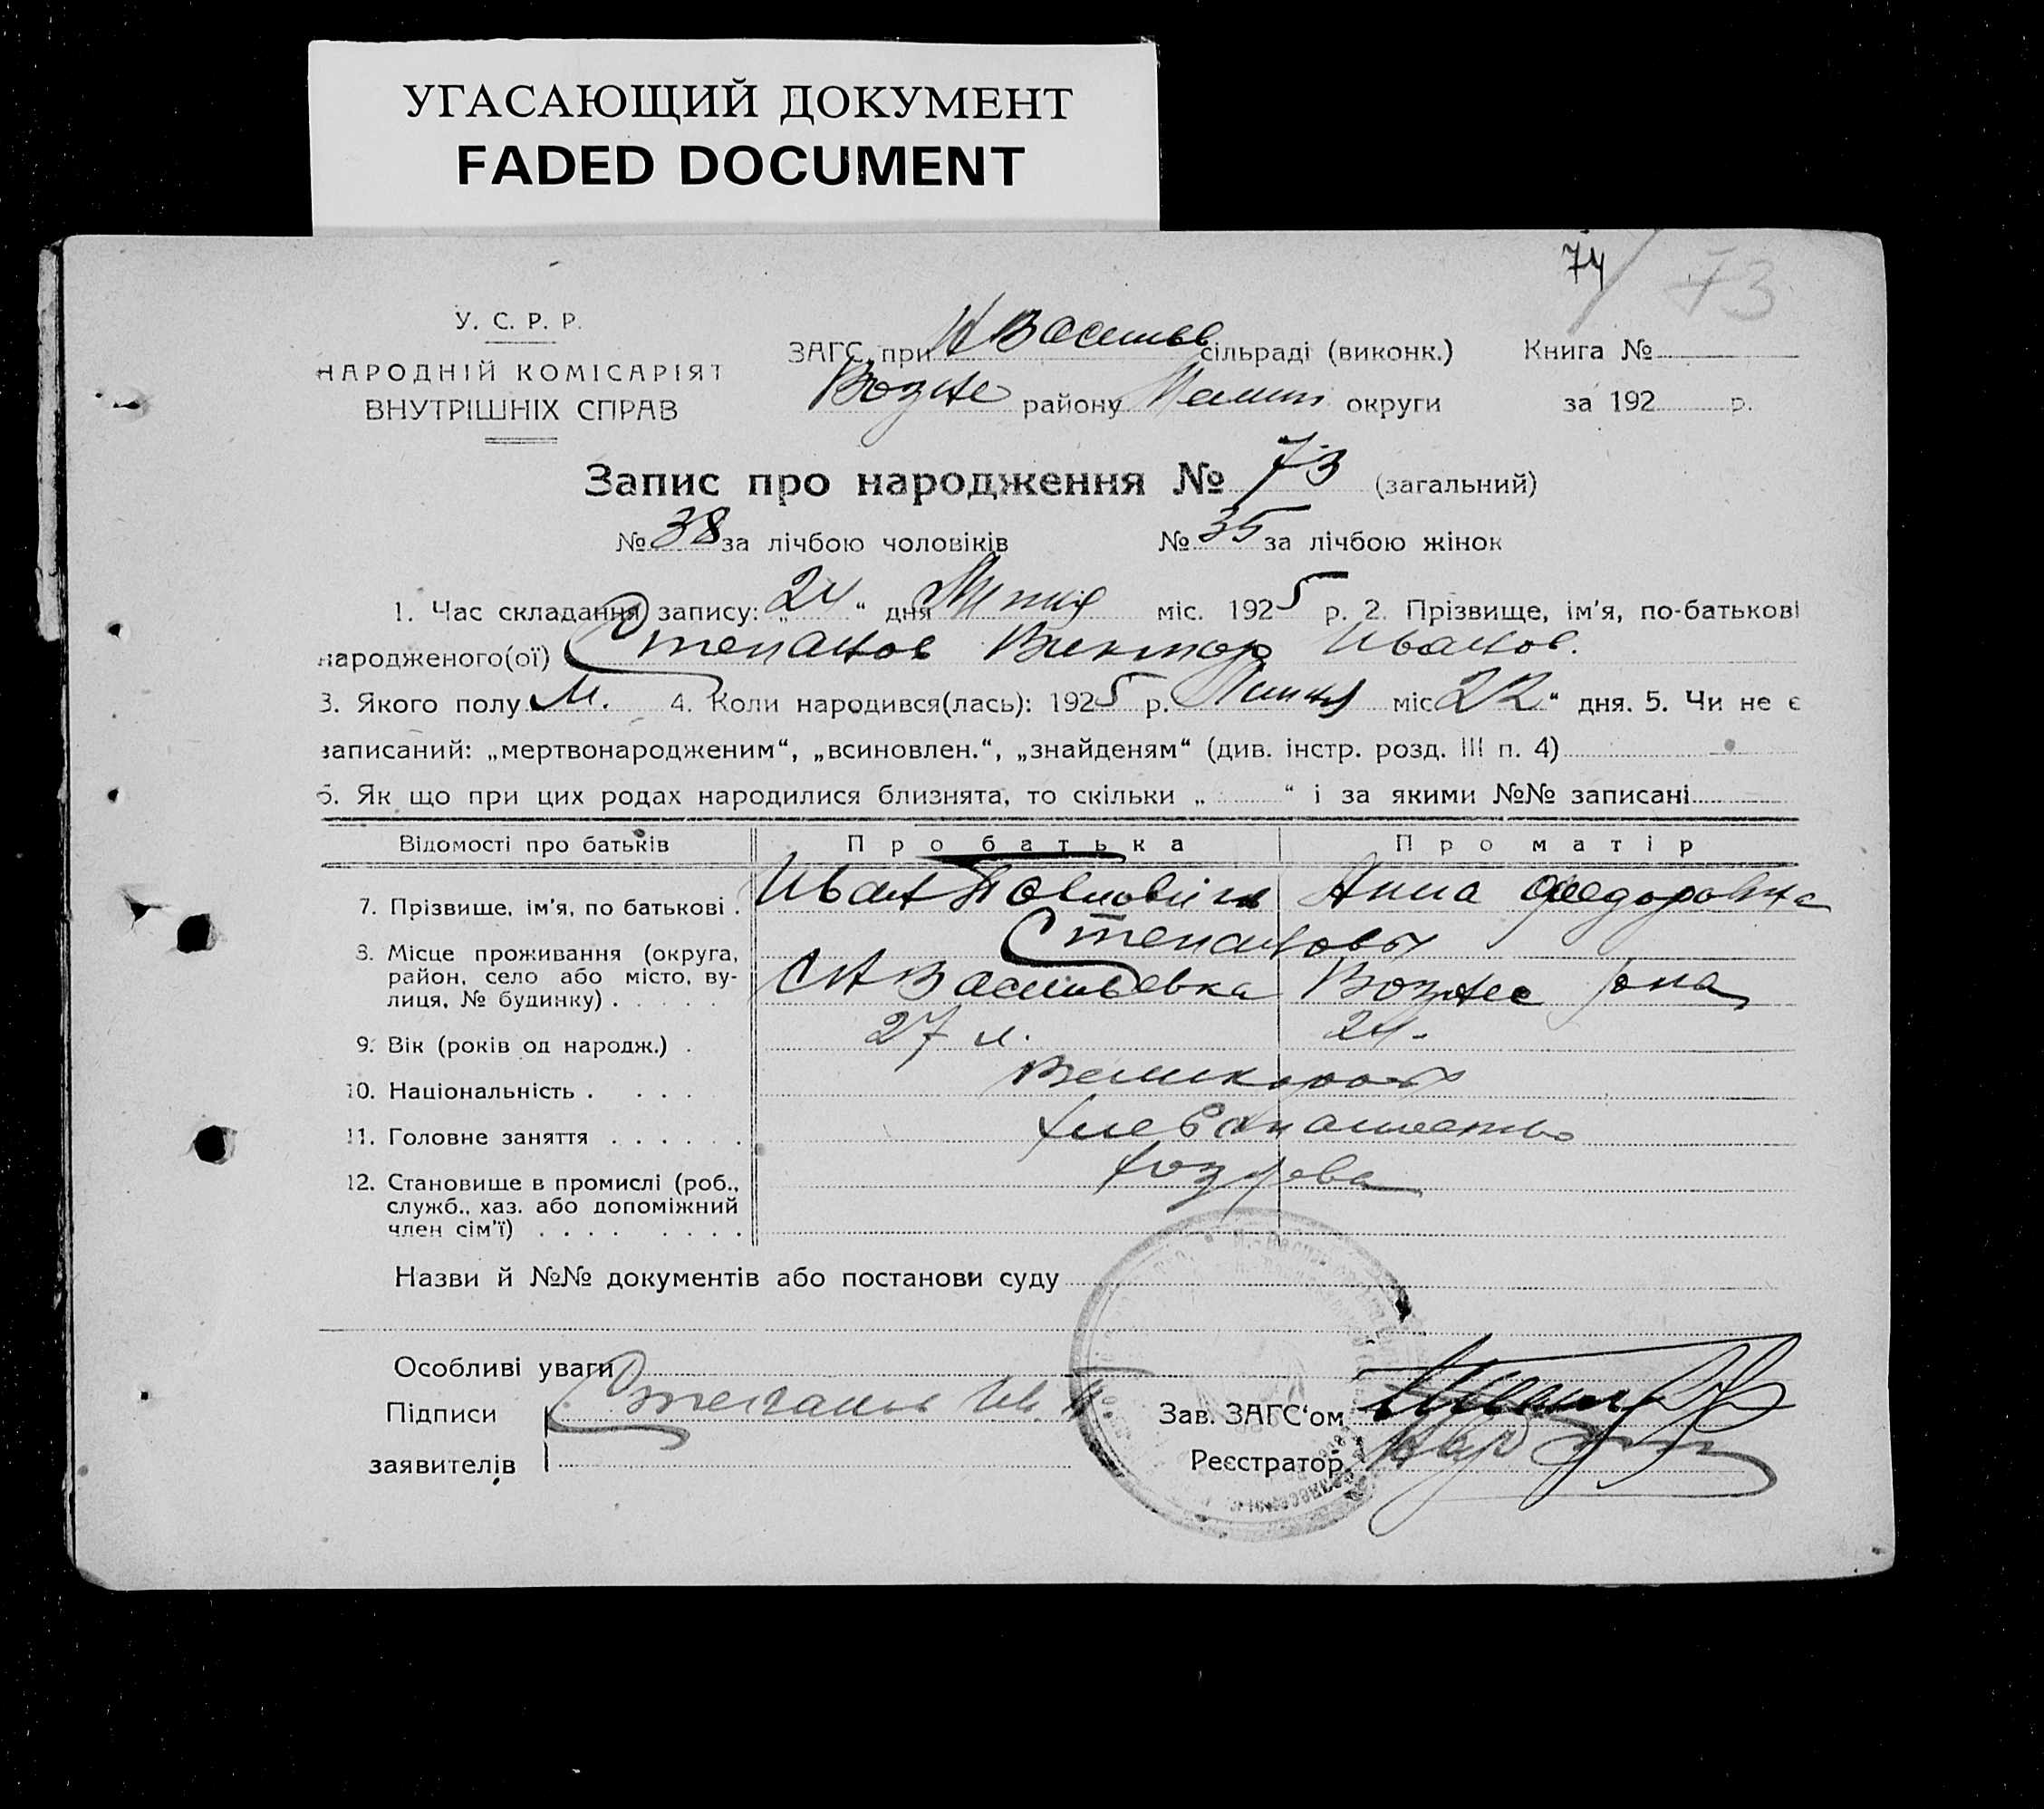 УГАСАЮЩИЙ ДОКУМЕНТ
FADED DOCUMENT
74 73
У. С. Р. Р.
НАРОДНІЙ КОМІСАРІЯТ
ВНУТРІШНІХ СПРАВ
ЗАГС при Н Васильев сільраді (виконк.) Книга №
Возне району округи за 192 р.
Запис про народження № 73 (загальний)
№ 38 за лічбою чоловіків № 35 за лічбою жінок
1. Час складання запису: „ 24 “ дня міс. 1925 р. 2. Прізвище, ім'я, по-батькові
народженого(ої) Степанов Виктор Иванов.
3. Якого полу М. 4. Коли народився(лась): 1925 р. міс 22 “ дня. 5. Чи не є
записаний: „мертвонародженим“, „всиновлен.“, „знайденям“ (див. інстр. розд. III п. 4)
6. Як що при цих родах народилися близнята, то скільки „ “ і за якими №№ записані
Відомості про батьків Про батька Про матір
7. Прізвище, ім'я, по батькові . Иван Анна Федоровна
Степановы
8. Місце проживання (округа,
район, село або місто, ву-
лиця, № будинку) . С Н Васильевка Возне рона
9. Вік (років од народж.) . 27 л. 24.
10. Національність . Великоросы
11. Головне заняття . хлебопашество
12. Становище в промислі (роб.,
служб., хаз. або допоміжний
член сім'ї)
Назви й №№ документів або постанови суду
Особливі уваги
Підписи Степанов Ив. П. Зав. ЗАГС‘ом
заявителів Реєстратор